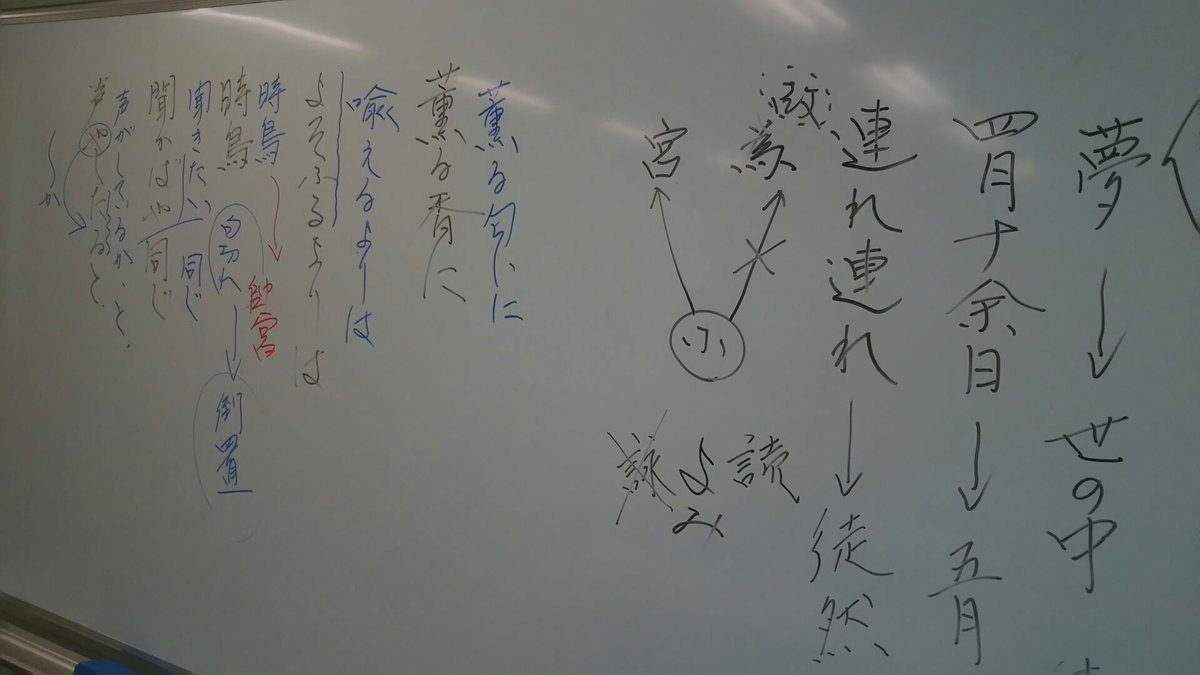 夢→世の中
四月十余日→五月
連れ連れ→徒然
為
宮
小
読
よみ
詠
薫る匂いに
薫る香に
喩えるよりは
よそふるよりは
時鳥→帥宮
時鳥
句切れ→倒置
聞きたい 同じ
聞かばや同じ
声がしているか、と。
声やしたると
〜か